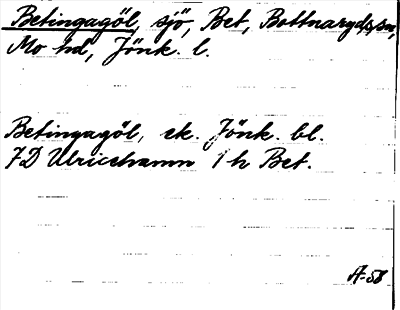 Betingagöl, sjö, Bet, Bottnaryds sn,
Mo hd, Jönk. l.
Betingagöl, ek. Jönk. bl.
7D Ulricehamn 1 h Bet.
A-58